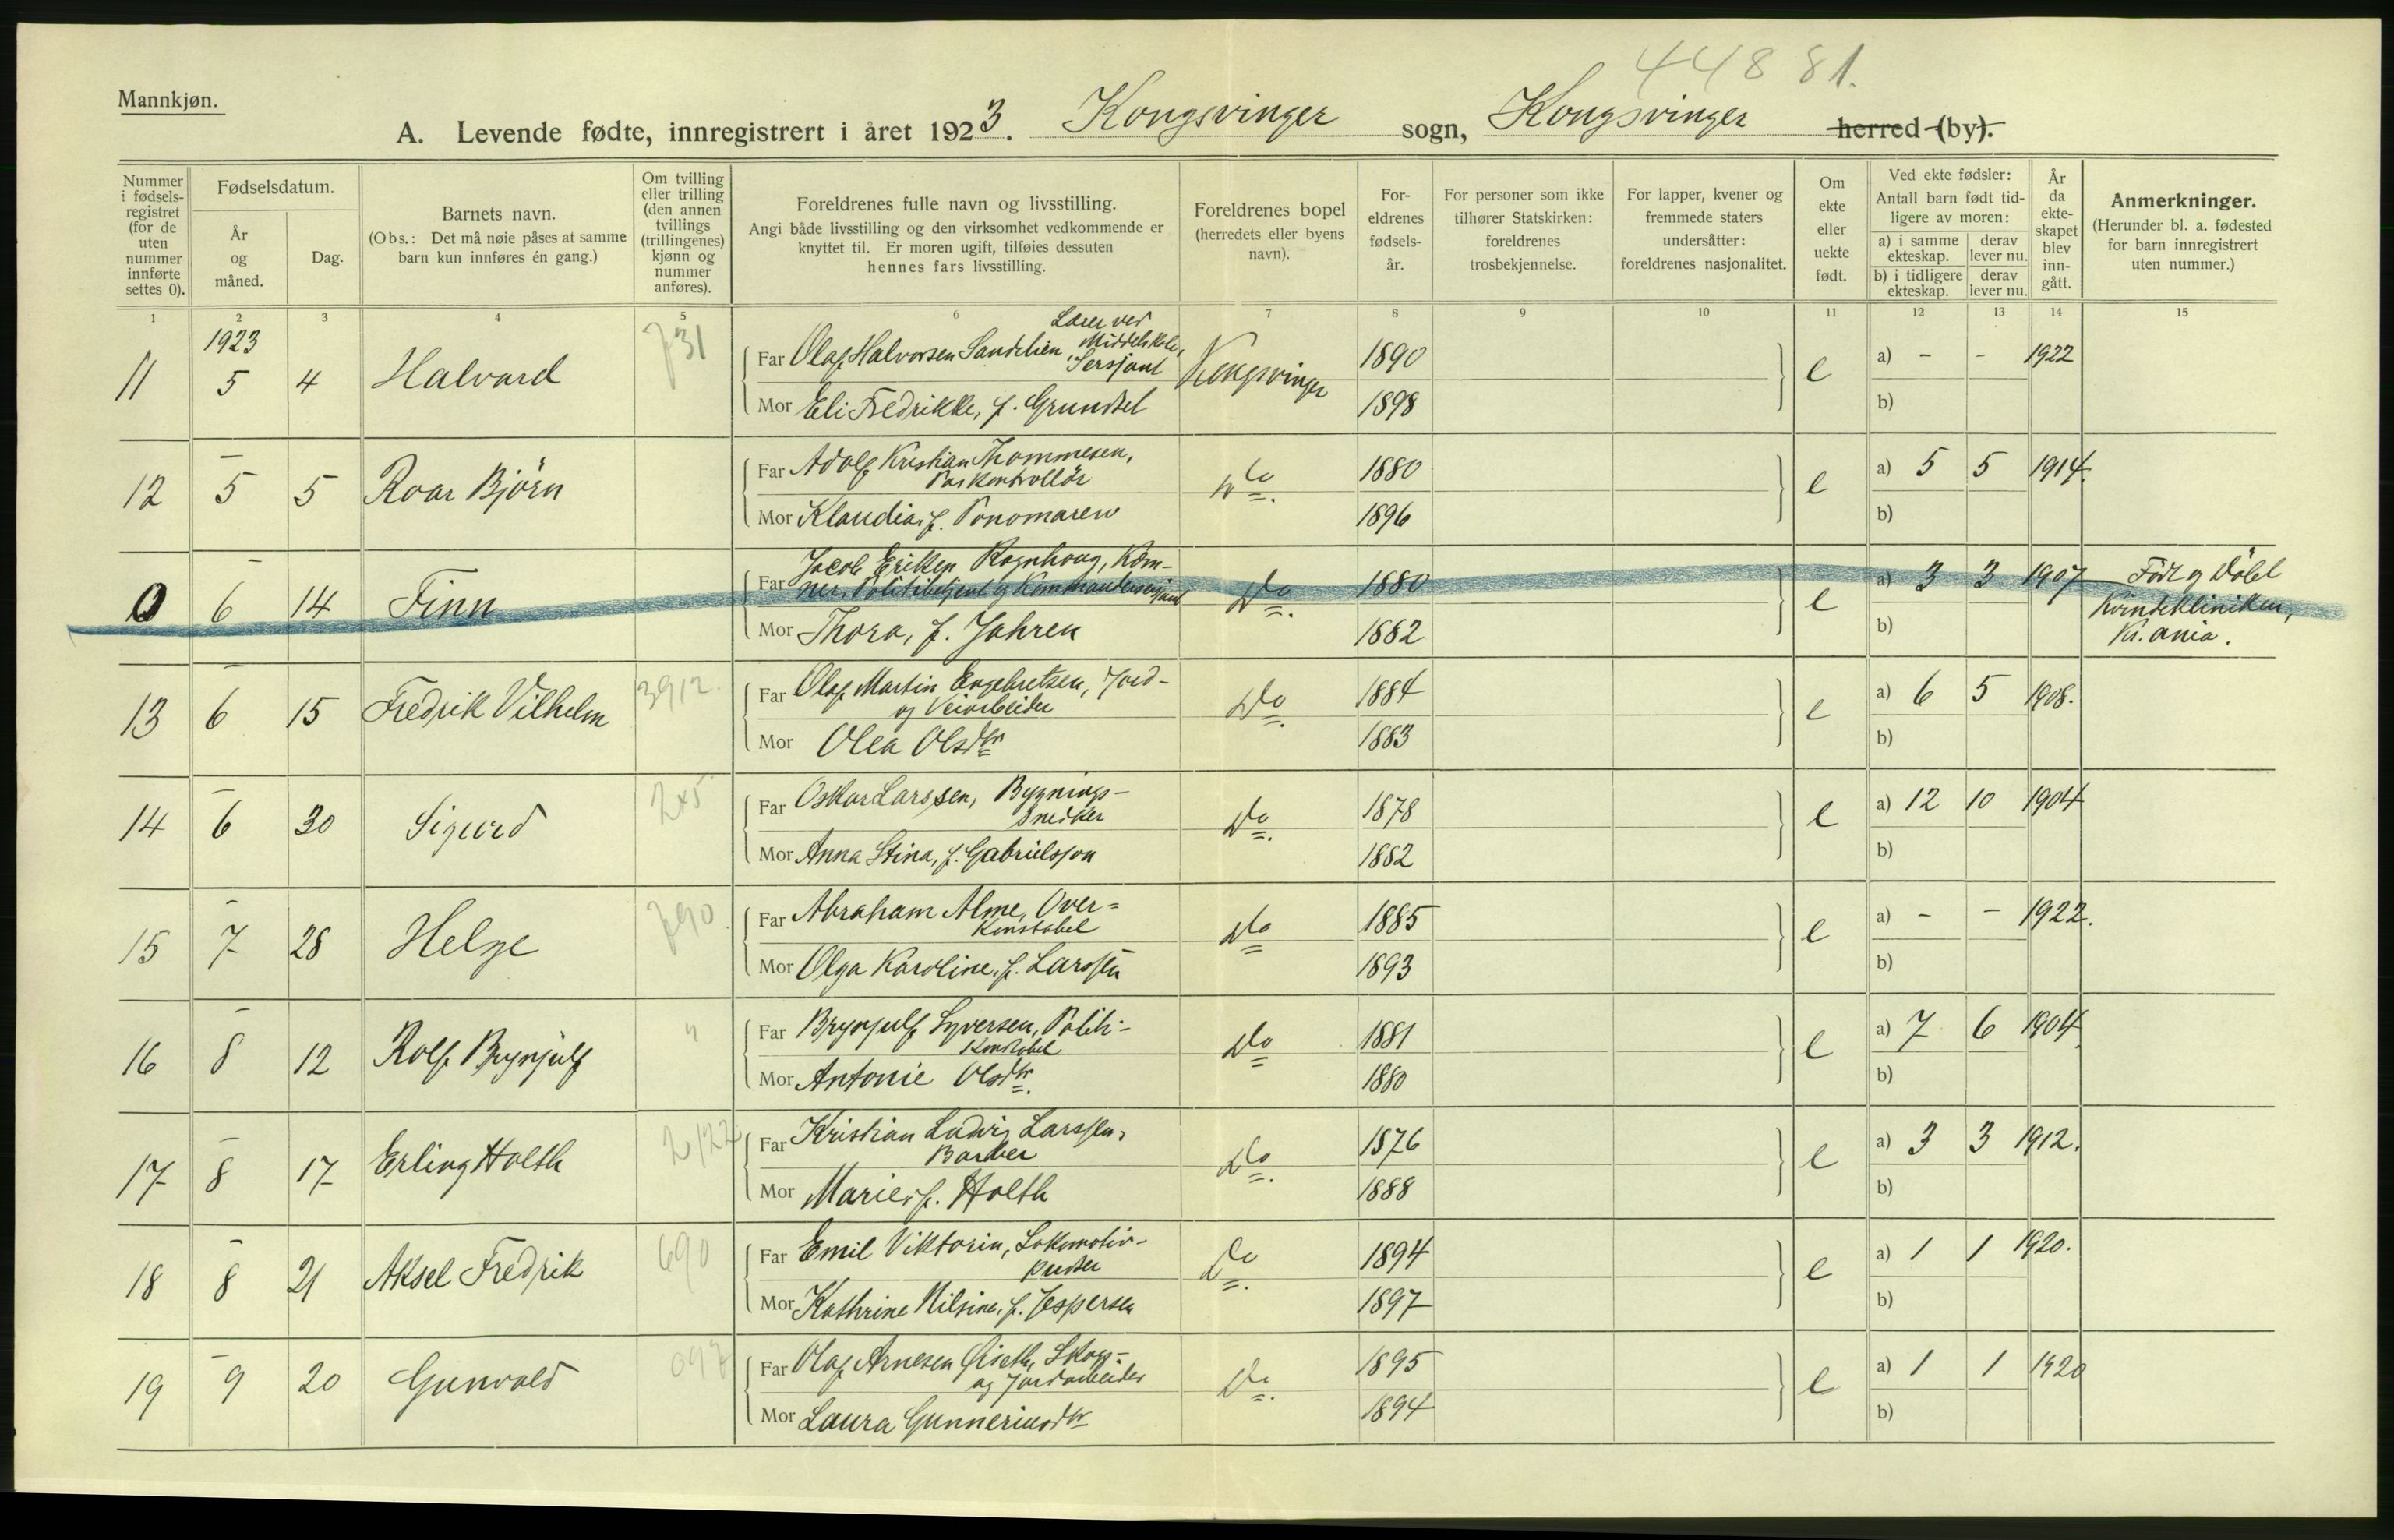 44881.
Mannkjøn.
A. Levende fødte, innregistrert i året 1923. Kongsvinger sogn, Kongsvinger herred (by).
Nummer i fødsels-registret (for de uten nummer innførte settes 0).
Fødselsdatum.
År og måned.
Dag.
Barnets navn.
(Obs.: Det må nøie påses at samme barn kun innføres én gang.)
Om tvilling eller trilling (den annen tvillings (trillingenes) kjønn og nummer anføres).
Foreldrenes fulle navn og livsstilling.
Angi både livsstilling og den virksomhet vedkommende er knyttet til. Er moren ugift, tilføies dessuten hennes fars livsstilling.
Foreldrenes bopel (herredets eller byens navn).
For-eldrenes fødsels-år.
For personer som ikke tilhører Statskirken: foreldrenes trosbekjennelse.
For lapper, kvener og fremmede staters undersåtter: foreldrenes nasjonalitet.
Om ekte eller uekte født.
Ved ekte fødsler:
Antall barn født tid-ligere av moren:
a) i samme ekteskap. derav lever nu.
b) i tidligere ekteskap. derav lever nu.
År da ekte-skapet blev inn-gått.
Anmerkninger.
(Herunder bl. a. fødested for barn innregistrert uten nummer.)
1 2 3 4 5 6 7 8 9 10 11 12 13 14 15
1923
11 5 4 Halvard 731
Far Olaf Halvorsen Sandlien, Lærer ved Middelskole, Sersjant Kongsvinger 1890 e a) - - 1922
Mor Eli Fredrikke, f. Grundsel 1898 b)
12 - 5 5 Roar Björn
Far Adolf Kristian Thommesen, Paskontrollör do. 1880 e a) 5 5 1914.
Mor Klaudia, f. Ponomarew 1896 b)
0 - 6 14 Finn
Far Jacob Eriksen Rognhaug, Kem-ner, Politibetjent og Kommandersersjant Do. 1880 e a) 3 3 1907 Født og Döbt
Mor Thora, f. Jahren 1882 b) Kvindekliniken, Kr.ania.
13 - 6 15 Fredrik Vilhelm 3912.
Far Olaf Martin Engebretsen, Jord- og Veiarbeider Do. 1884 e a) 6 5 1908.
Mor Olea Olsdtr 1883 b)
14 - 6 30 Sigurd 245
Far Oskar Larssen, Bygnings-snedker Do. 1878 e a) 12 10 1904
Mor Anna Stina, f. Gabrielsson 1882 b)
15 - 7 28 Helge 790
Far Abraham Alme, Over=konstabel Do 1885 e a) - - 1922.
Mor Olga Karoline, f. Larssen 1893 b)
16 - 8 12 Rolf Brynjulf "
Far Brynjulf Syversen, Politi-konstabel Do 1881 e a) 7 6 1904
Mor Antonie Olsdtr. 1880 b)
17 - 8 17 Erling Holth 2122
Far Kristian Ludvig Larssen, Barber Do. 1876 e a) 3 3 1912.
Mor Marie, f. Holth 1888 b)
18 - 8 21 Aksel Fredrik 690
Far Emil Viktorin, Lokomotiv-pudser Do. 1894 e a) 1 1 1920.
Mor Kathrine Nilsine, f. Jespersen 1897 b)
19 - 9 20 Gunvald 097
Far Olaf Arnesen Öiseth, Skogs- og Jordarbeider Do. 1895 e a) 1 1 1920
Mor Laura Gunneriusdtr 1894 b)